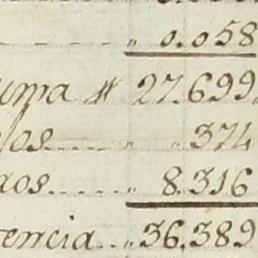 0.058
uma # 27.699
sos ..... " " 374
dos ..... " 8.316
rencia ... " 36.389